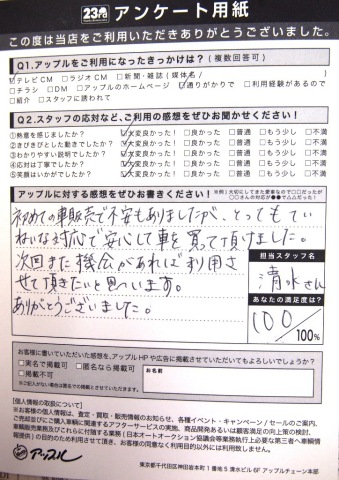 23rd アンケート用紙
この度は当店をご利用いただきありがとうございました。
Q1.アップルをご利用になったきっかけは？(複数回答可)
☑テレビCM □ラジオCM □新聞・雑誌(媒体名/ )
□チラシ □DM □アップルのホームページ ☑通りがかりで □利用経験があるので
□紹介 □スタッフに誘われて
Q2.スタッフの応対など、ご利用の感想をお聞かせください！
①熱意を感じましたか？ ☑大変良かった！ □良かった □普通 □もう少し □不満
②きびきびとした動きでしたか？ ☑大変良かった！ □良かった □普通 □もう少し □不満
③わかりやすい説明でしたか？ ☑大変良かった！ □良かった □普通 □もう少し □不満
④応対は丁寧でしたか？ ☑大変良かった！ □良かった □普通 □もう少し □不満
⑤笑顔はいかがでしたか？ ☑大変良かった！ □良かった □普通 □もう少し □不満
アップルに対する感想をぜひお書きください！
※例)大切にしてきた愛車なので□□だったが
○○さんの対応が●●で△△だった！
初めての車販売で不安もありましたが、とってもてい
ねいな対応で安心して車を買って頂けました。
次回また機会があれば利用さ
せて頂きたいと思います。
ありがとうございました。
担当スタッフ名
清水さん
あなたの満足度は？
100/100%
お客様に書いていただいた感想を、アップルHPや広告に掲載させていただいてもよろしいでしょうか？
□実名で掲載可 □匿名なら掲載可
□掲載不可
※ご記入がない場合は匿名での掲載とさせていただきます。
お名前
[個人情報の取扱について]
※お客様の個人情報は、査定・買取・販売情報のお知らせ、各種イベント・キャンペーン/セールのご案内、
ご売却並びにご購入車両に関連するアフターサービスの実施、商品開発あるいは顧客満足の向上策の検討、
車両販売業務及びこれらに付随する業務(日本オートオークション協議会等業務執行上必要な第三者へ車輌情
報提供)の目的のため利用させて頂き、お客様の同意なく利用目的以外には利用致しません。
アップル
東京都千代田区神田岩本町1番地5 清水ビル6F アップルチェーン本部